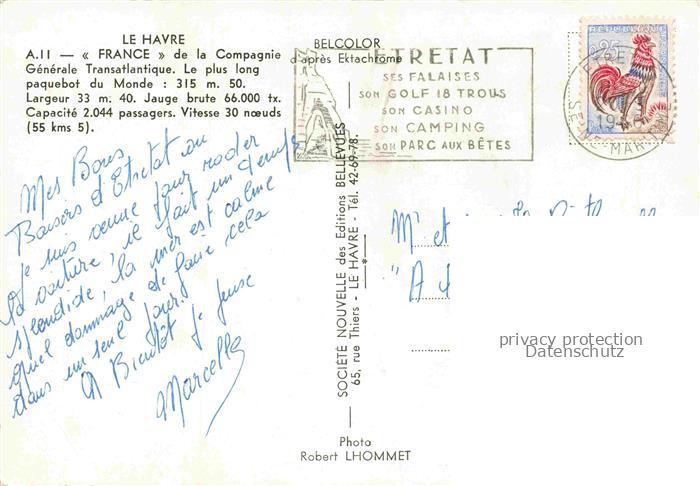 LE HAVRE
A.11 — « FRANCE » de la Compagnie
Générale Transatlantique. Le plus long
paquebot du Monde : 315 m. 50.
Largeur 33 m. 40. Jauge brute 66.000 tx.
Capacité 2.044 passagers. Vitesse 30 nœuds
(55 kms 5).
BELCOLOR
d'après Ektachrome
ETRETAT
SES FALAISES
SON GOLF 18 TROUS
SON CASINO
SON CAMPING
SON PARC AUX BÊTES
Mes Bons
Baisers d'Etretat où
Je suis venue pour roder
la voiture, il fait un temps
splendide, la mer est calme
quel dommage de faire cela
dans un seul jour.
A Bientôt je pense
Marcelle
SOCIÉTÉ NOUVELLE des Editions BELLEVUES
65, rue Thiers - LE HAVRE - Tél. 42-69-78.
Mr et
"A
privacy protection
Datenschutz
Photo
Robert LHOMMET